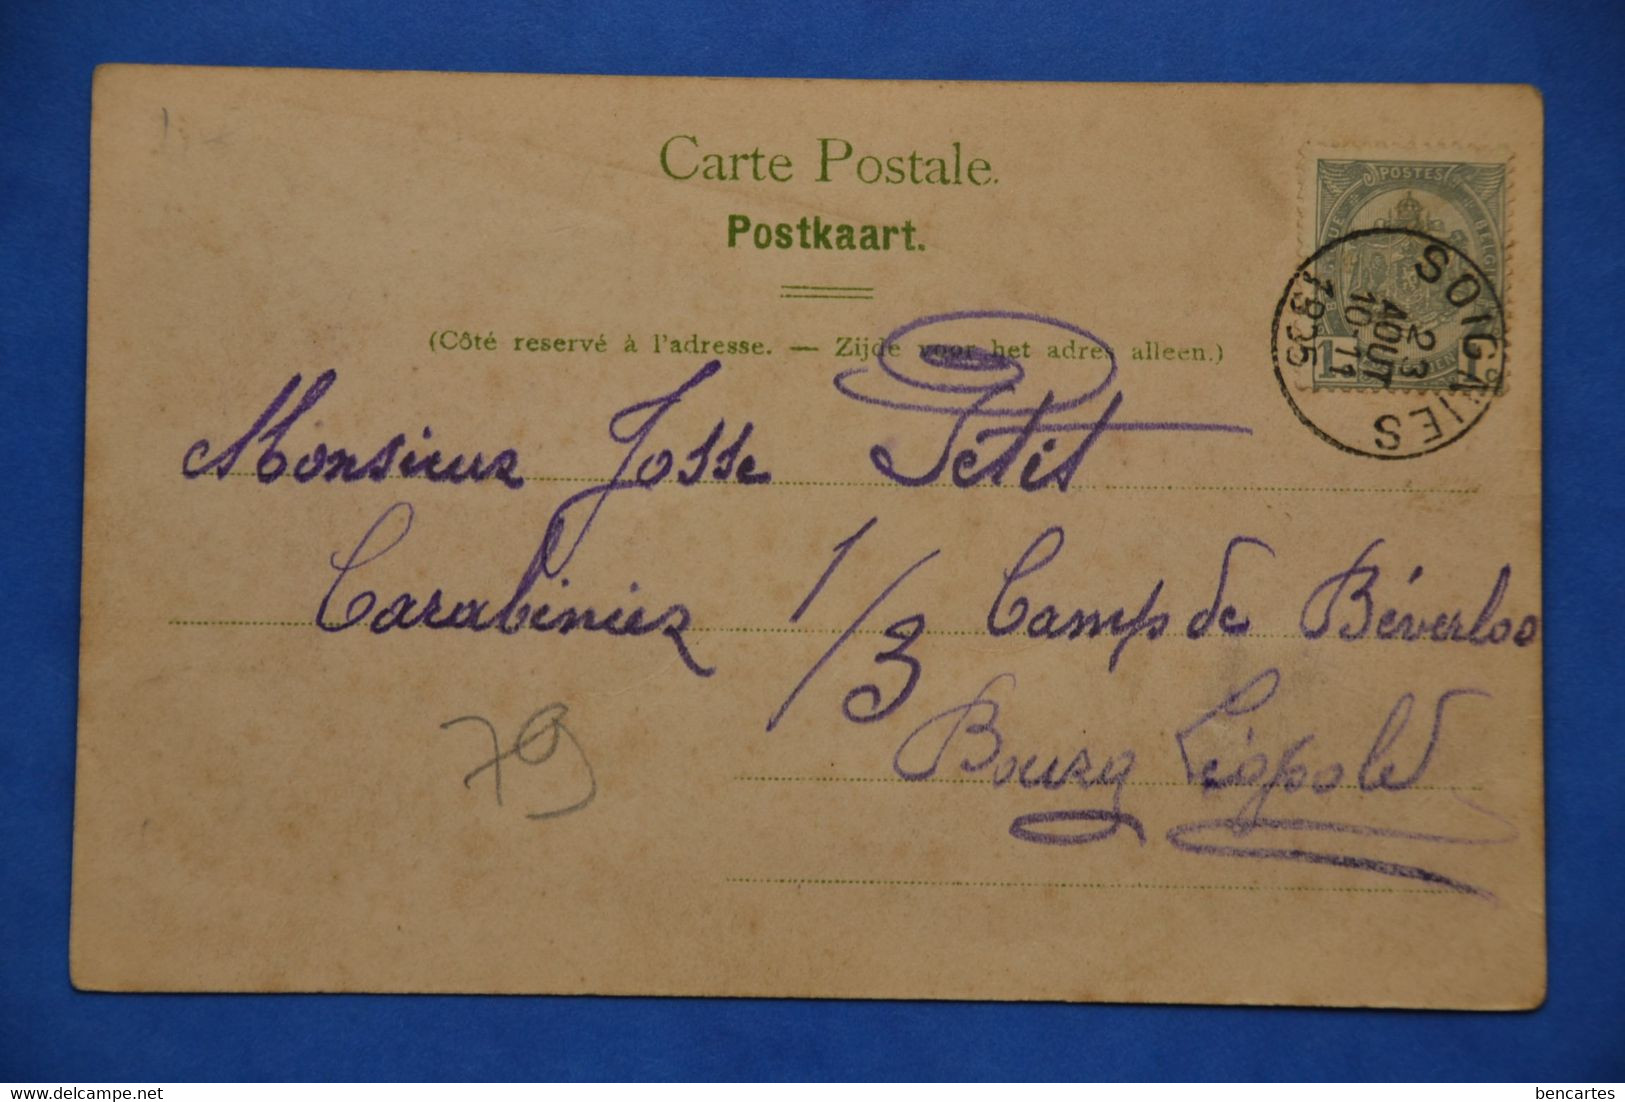 Carte Postale.
Postkaart.
(Côté reservé à l'adresse. — Zijde voor het adres alleen.)
POSTES
BELGIQUE
SOIGNIES
23
AOUT
10-11
1905
Monsieur Josse Petit
Carabinier 1/3 Camp de Béverloo
Bourg Léopold
79
bencartes